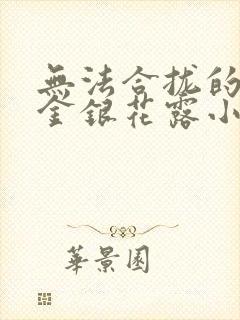 無法合拢的
金銀花露小
華景園